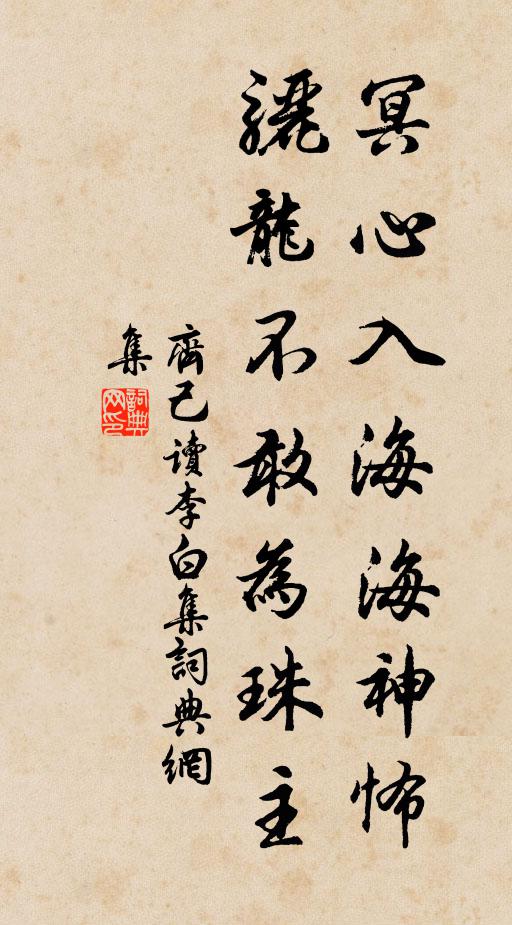 冥心入海海神怖
驪龍不敢為珠主
齊己讀李白集詞典網
集
詞典網印